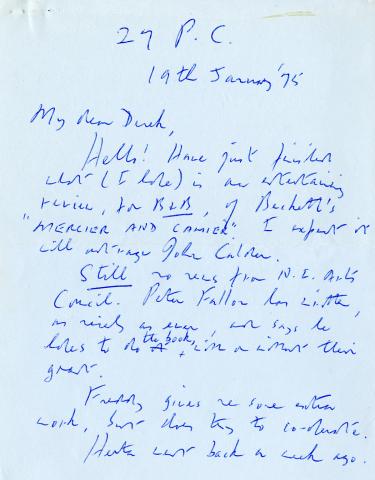 29 P.C.
19th January '75
My dear Derek,
Hello! Have just finished
what (I hope) is an entertaining
review, for B&B, of Beckett's
"MERCIER AND CAMIER". I expect it
will outrage John Calder.
Still no news from N.E. Arts
Council. Peter Fallon has written,
as nicely as ever, and says he
hopes to do the book, with or without their
grant.
Freddy gives me some extra
work, but does try to co-operate.
went back a week ago.